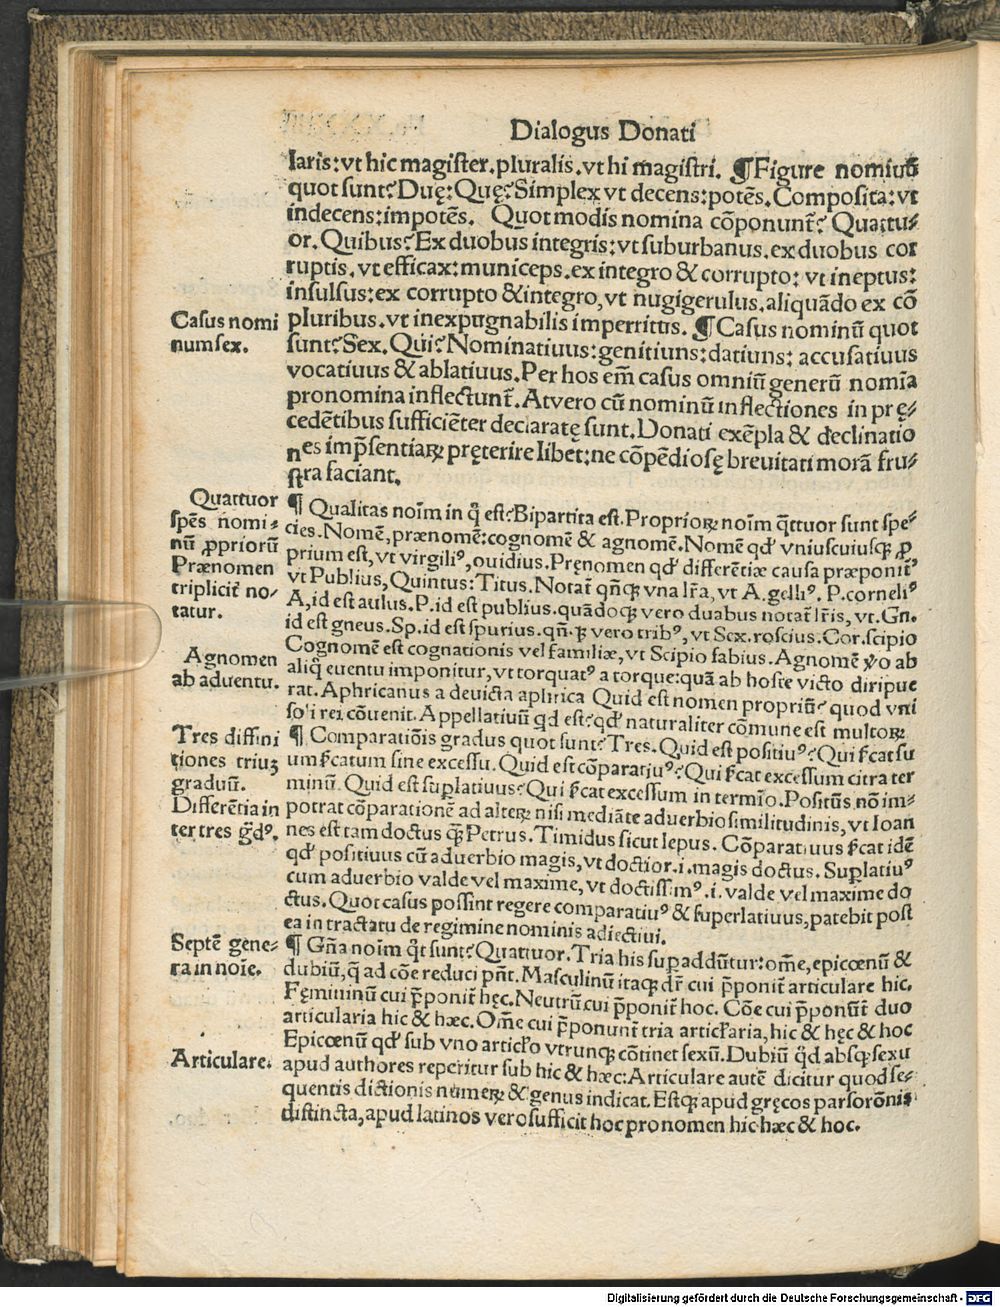 Dialogus Donati
laris: vt hic magister. pluralis. vt hi magistri. ¶ Figure nominū
quot sunt? Duę: Quę? Simplex vt decens: potēs. Composita: vt
indecens: impotēs. Quot modis nomina cōponunt̄? Quattu⸗
or. Quibus? Ex duobus integris: vt suburbanus. ex duobus cor
ruptis. vt efficax: municeps. ex integro & corrupto: vt ineptus:
insulsus: ex corrupto & integro, vt nugigerulus. aliquādo ex cō
pluribus. vt inexpugnabilis imperritus. ¶ Casus nominū quot
sunt? Sex. Qui? Nominatiuus: genitiuns: datiuns: accusatiuus
vocatiuus & ablatiuus. Per hos em̄ casus omniū generū nomīa
pronomina inflectunt̄. Atvero cū nominū inflectiones in prę⸗
cedētibus sufficiēter declaratę sunt. Donati exēpla & declinatio
nes imp̄sentiaꝝ pręterire libet: ne cōpēdiosę breuitati morā fru⸗
stra faciant.
Casus nomi
num sex.
¶ Qualitas noīm in q̄ est? Bipartita est. Proprioꝝ noīm q̄ttuor sunt spe⸗
cies. Nomē, prænomē: cognomē & agnomē. Nomē qđ vniuscuiusqꝫ ꝓ
prium est, vt virgiliꝰ, ouidius. Pręnomen qđ differētiæ causa præponit̄
vt Publius, Quintus: Titus. Notat̄ qn̄qꝫ vna lr̄a, vt A. gelliꝰ. P. corneliꝰ
A, id est aulus. P. id est publius. quādoqꝫ vero duabus notat̄ lr̄is, vt. Gn.
id est gneus. Sp. id est spurius. qn̄qꝫ vero tribꝰ, vt Sex. roscius. Cor. scipio
Cognomē est cognationis vel familiæ, vt Scipio fabius. Agnomē ꝟo ab
aliq̄ euentu imponitur, vt torquatꝰ a torque: quā ab hoste victo diripue
rat. Aphricanus a deuicta aphrica Quid est nomen propriū? quod vni
soli rei cōuenit. Appellatiuū qđ est? qđ naturaliter cōmune est multoꝝ
Quattuor
spēs nomi⸗
nū ꝓpriorū
Prænomen
triplicit̄ no⸗
tatur.
Agnomen
ab aduentu.
¶ Comparatiōis gradus quot sunt? Tres. Quid est positiuꝰ? Qui s̄cat su
um s̄catum sine excessu. Quid est cōparatiuꝰ? Qui s̄cat excessum citra ter
minū. Quid est suplatiuus? Qui s̄cat excessum in termīo. Positiūs nō im⸗
potrat cōparationē ad alteꝝ nisi mediāte aduerbio similitudinis, vt Ioan
nes est tam doctus qꝫ̄ Petrus. Timidus sicut lepus. Cōparatiuus s̄cat idē
qđ positiuus cū aduerbio magis, vt doctior. i. magis doctus. Suplatiuꝰ
cum aduerbio valde vel maxime, vt doctissimꝰ. i. valde vel maxime do
ctus. Quot casus possint regere comparatiuꝰ & superlatiuus, patebit post
ea in tractatu de regimine nominis adiectiui.
Tres diffini
tiones triuꝫ
graduū.
Differētia in
ter tres g̈dꝰ.
¶ Gn̄a noīm q̄t sunt? Quattuor. Tria his supaddūtur: om̄e, epicœnū &
dubiū, q̄ ad cōe reduci pn̄t. Masculinū itaqꝫ dr̄ cui p̄ponit̄ articulare hic.
Fęmininū cui p̄ponit̄ hęc. Neutrū cui p̄ponit̄ hoc. Cōe cui p̄ponūt̄ duo
articularia hic & hæc. Om̄e cui p̄ponunt̄ tria articl̄aria, hic & hęc & hoc
Epicœnū qđ sub vno articl̄o vtrunqꝫ cōtinet sexū. Dubiū q̄d absqꝫ sexu
apud authores reperitur sub hic & hæc: Articulare autē dicitur quod se⸗
quentis dictionis numeꝝ & genus indicat. Estqꝫ apud gręcos pars orōnis
distincta, apud latinos vero sufficit hoc pronomen hic hæc & hoc.
Septē gene⸗
ra in noīe.
Articulare.
Digitalisierung gefördert durch die Deutsche Forschungsgemeinschaft - DFG